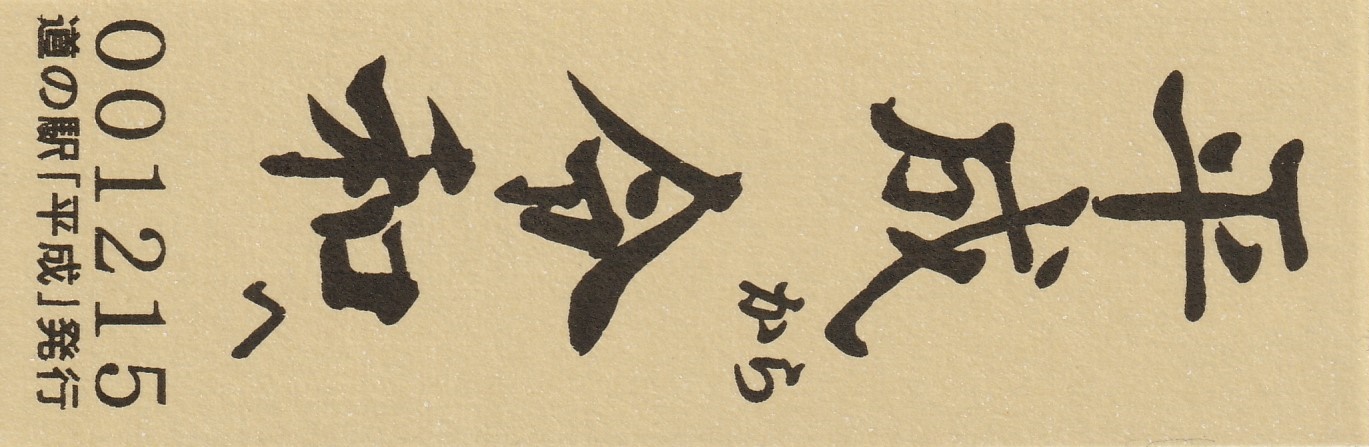 平成
から
令和
へ
001215
道の駅「平成」発行